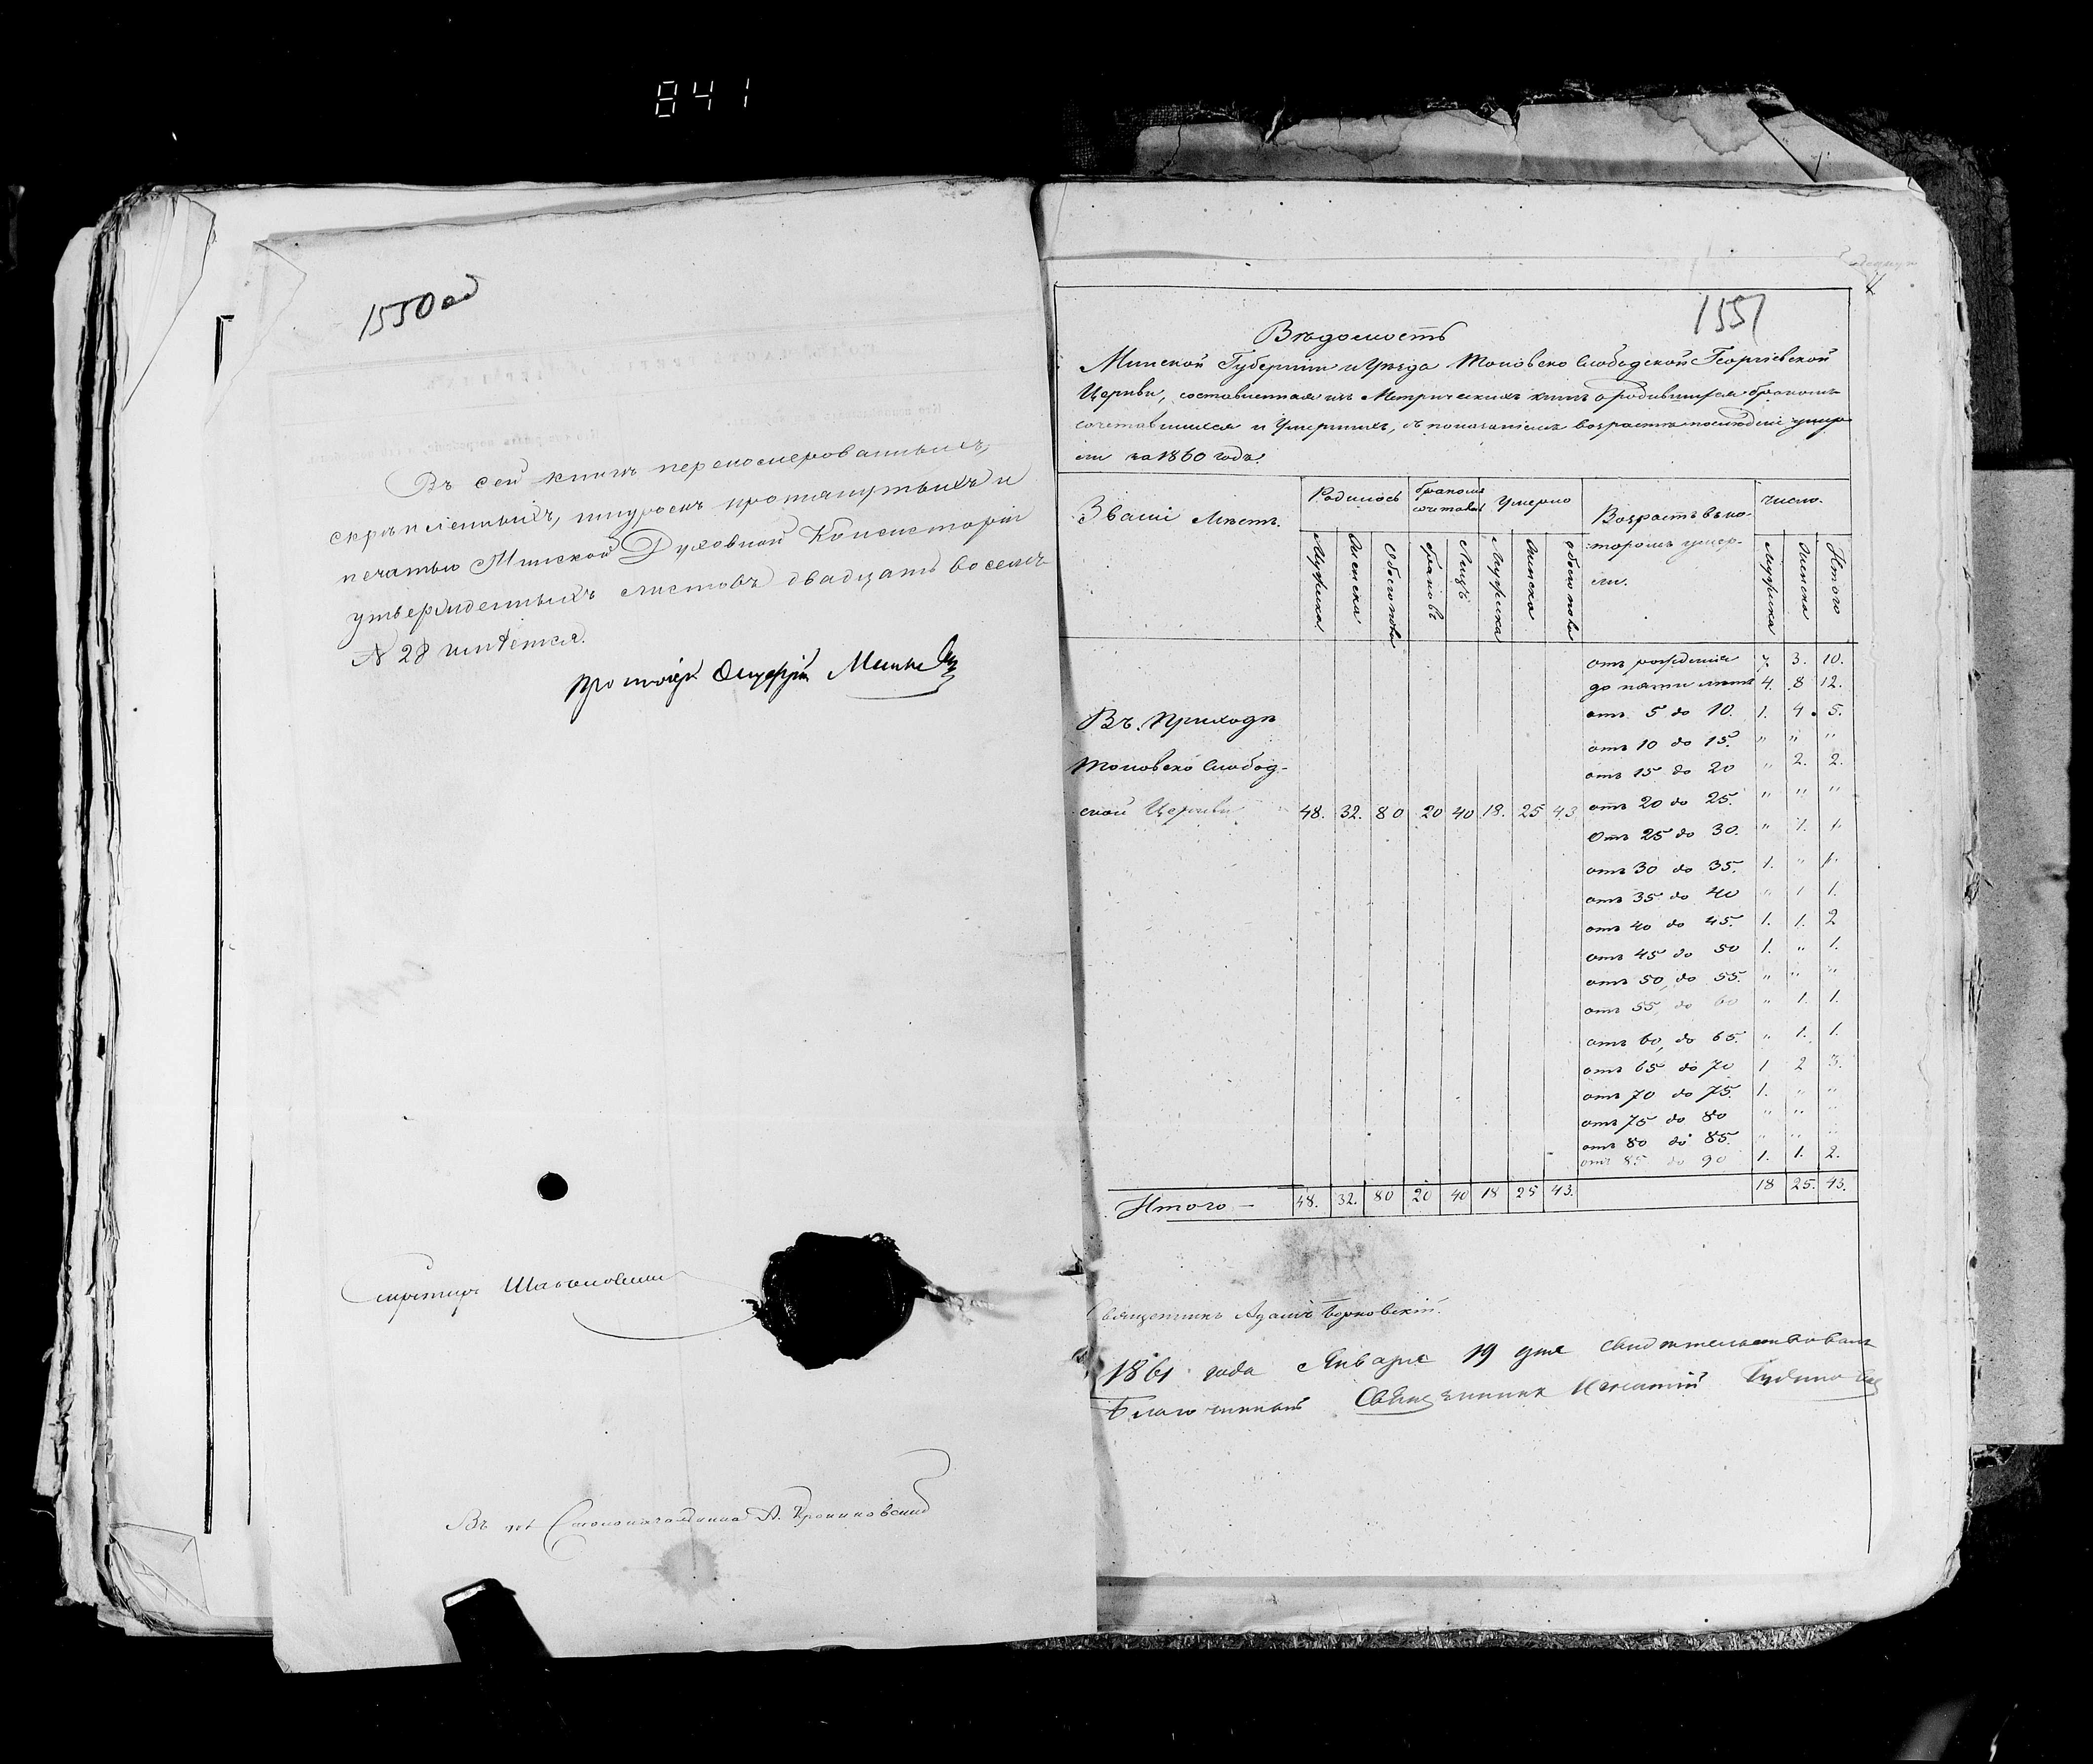 841
1550 об
Въ сей книгѣ перенумерованныхъ,
скрѣпленныхъ, шнуромъ протянутыхъ и
печатью Минской Духовной Консисторіи
утвержденныхъ листовъ двадцать восемь
№ 28 имѣется.
Секретарь
Въ д. Столоначальника А.
1551
Вѣдомость
Минской Губерніи и Уѣзда Слободской Георгіевской
Церкви, составленная изъ Метрическихъ книгъ о родившихся бракомъ
сочетавшихся и Умершихъ, съ показаніемъ возраста умер
ли за 1860 годъ.
Званіе Мѣстъ. Родилось бракомъ сочетав Умерло Возрастъ въ ко- число.
торомъ умер-
ли.
Мужска Женска Обоего пола браковъ Лицъ Мужска Женска обоего пола Мужска Женска Итого
отъ рожденія 7. 3. 10.
до пяти лѣтъ 4. 8 12.
Въ Приходѣ отъ 5 до 10. 1. 4. 5.
отъ 10 до 15. " " "
Слобод- отъ 15 до 20 " 2. 2.
ской Церкви 48. 32. 80 20 40 18. 25 43 отъ 20 до 25. " " "
Отъ 25 до 30. " 1. 1.
отъ 30 до 35. 1. " 1.
отъ 35 до 40 " 1 1.
отъ 40 до 45. 1. 1. 2
отъ 45 до 50 1. " 1.
отъ 50, до 55. " " "
отъ 55, до 60 " 1. 1.
отъ 60, до 65. " 1. 1.
отъ 65 до 70 1 2 3.
отъ 70 до 75. 1. " "
отъ 75 до 80 " " "
отъ 80 до 85. " " "
отъ 85 до 90 1. 1. 2.
Итого — 48. 32. 80 20 40 18 25 43. 18 25. 43.
Священникъ Адамъ Борковскій.
1861 года Января 19 дня свидѣтельствовалъ
Благочинный Священникъ Игнатій